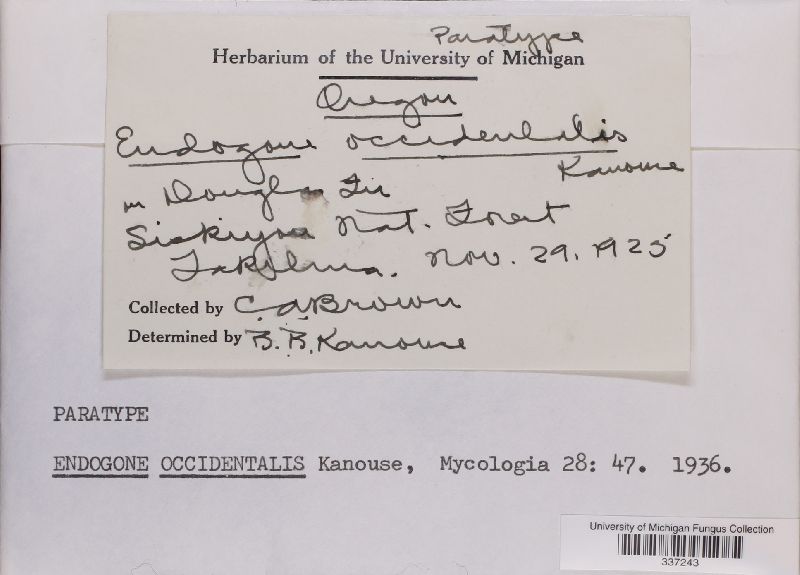 Paratype
Herbarium of the University of Michigan
Oregon
Endogone occidentalis
Kanouse
in Douglas Fir
Siskiyou Nat. Forest
Takilma. Nov. 29, 1925
Collected by C. A. Brown
Determined by B. B. Kanouse
PARATYPE
ENDOGONE OCCIDENTALIS Kanouse, Mycologia 28: 47. 1936.
University of Michigan Fungus Collection
337243